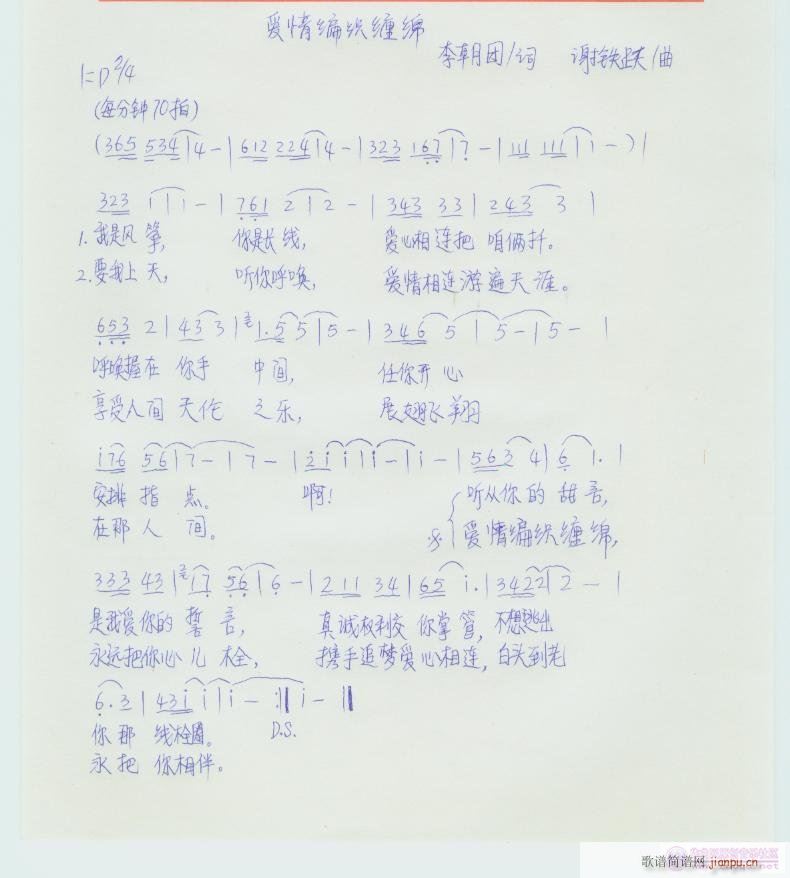 爱情编织缠绵
李朝团/词 谢铁跌/曲
1=D 2/4
(每分钟70拍)
(365 534|4-|612 224|4-|323 167|7-|111 111|i-)|
323 i|i-|761 2|2-|343 33|243 3|
1.我是风筝, 你是长线, 爱心相连把咱俩扦。
2.要我上天, 听你呼唤, 爱情相连游遍天涯。
653 2|43 3|1.5 5|5-|346 5|5-|5-|
呼唤握在你手 中间, 任你开心
享受人间天伦 之乐, 展翅飞翔
i76 56|7-|7-|2i i|i-|i-|563 4|6 1.|
安排指点。 啊! 听从你的甜言,
在那人间。 爱情编织缠绵,
333 43|17 56|6-|211 34|65 i.|3422|2-|
是我爱你的誓言, 真诚权利交你掌管, 不想逃出
永远把你心儿栓, 携手追梦爱心相连, 白头到老
6.3|43i i|i-:‖i-‖
你那线栓圈。 D.S.
永把你相伴。
歌谱简谱网 jianpu.cn